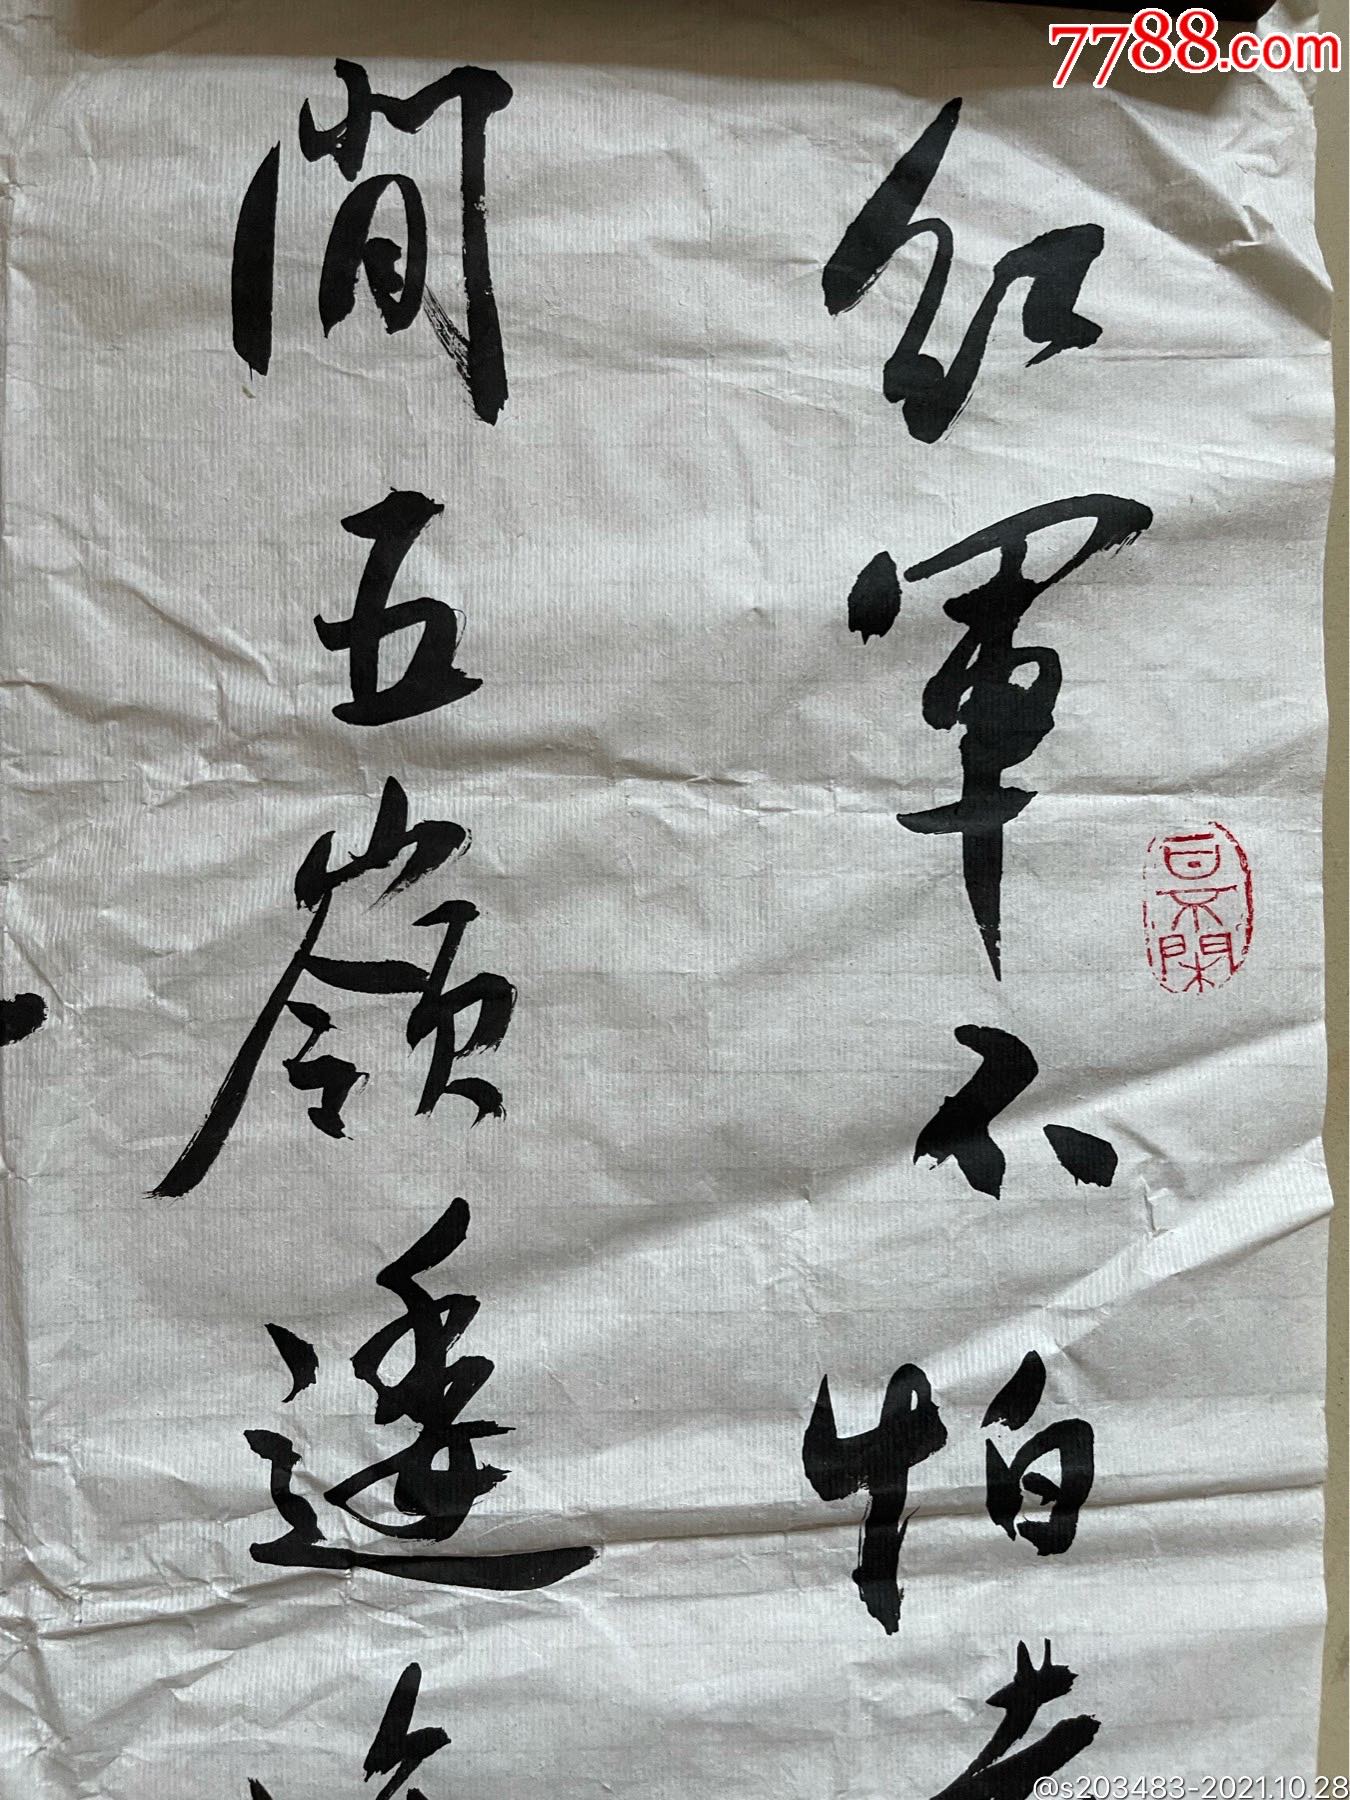 7788.com
红軍不怕
閒五嶺逶
@s203483-2021.10.28